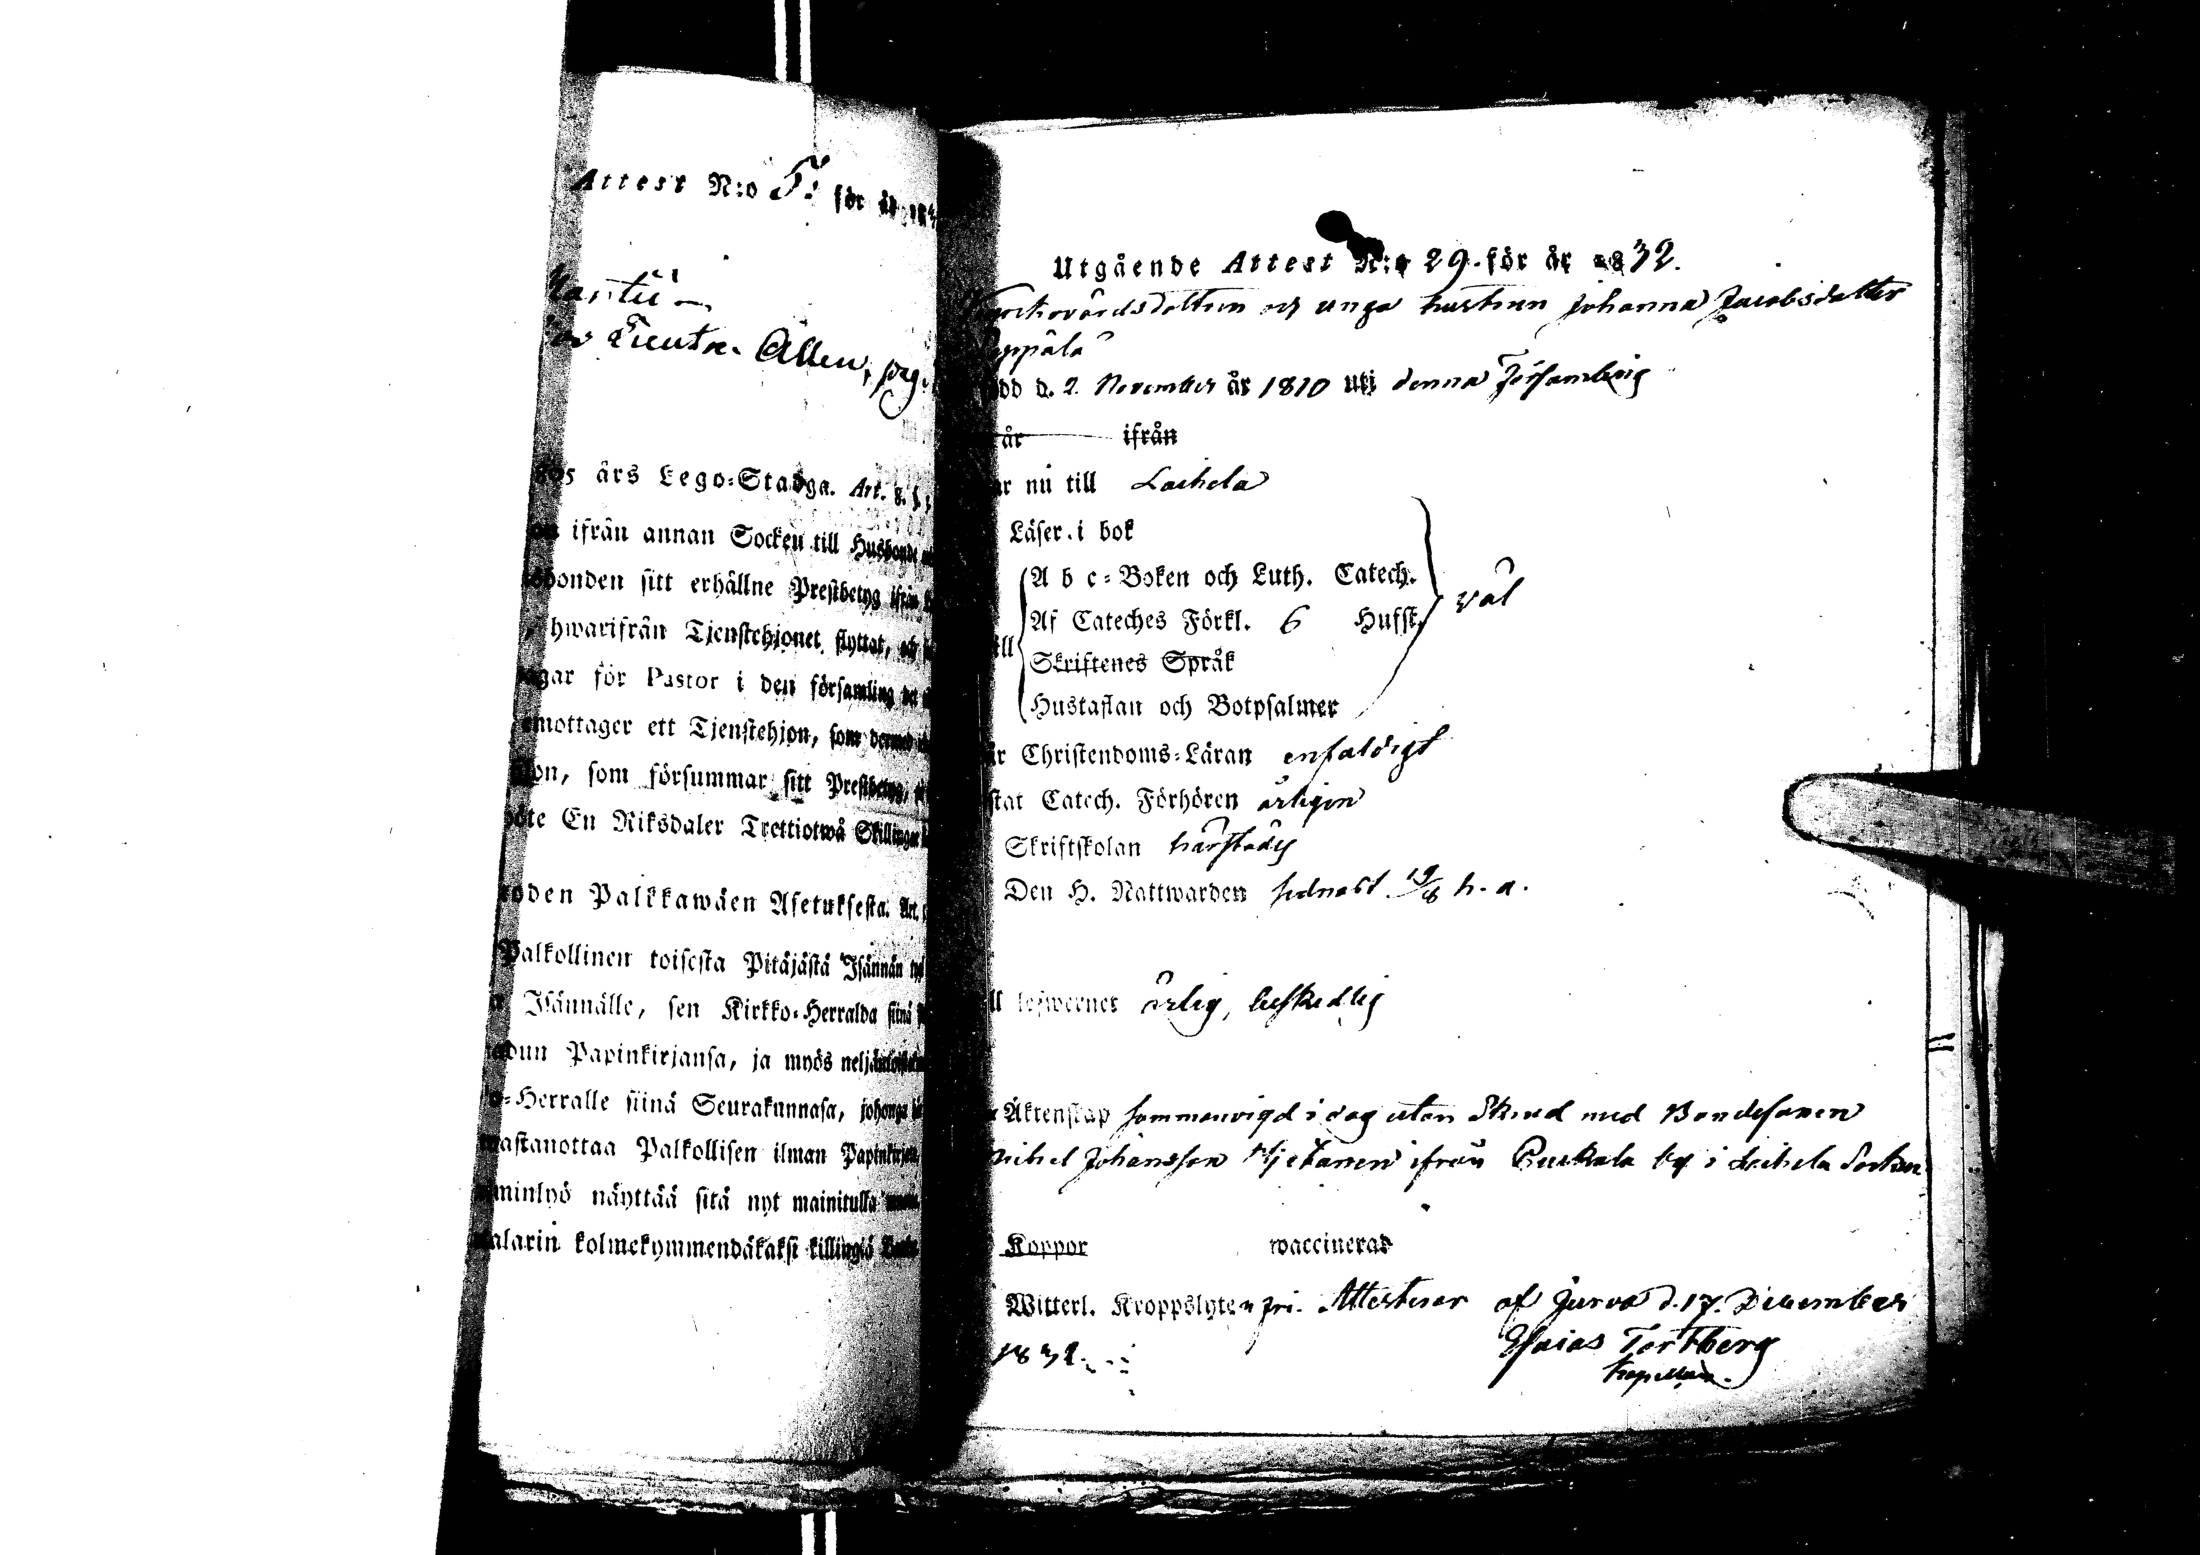 Attest N:o 5: för år 18
Kantu
Tuuta. Allen, pag.
805 års Lego=Stadga. Art. 8. §
ifrån annan Socken till Husbonde
bonden sitt erhållne Prestbetyg ifrån
hwarifrån Tjenstehjonet flyttat, och
dagar för Pastor i den församling det
emottager ett Tjenstehjon, som dermed
hjon, som försummar sitt Prestbetyg,
böte En Riksdaler Trettiotwå Skillingar
oden Palkkawäen Asetuksesta. Art.
Palkollinen toisesta Pitäjästä Isännän tyg
Isännälle, sen Kirkko=Herralda siinä
dun Papinkirjansa, ja myös neljäntoista
o=Herralle siinä Seurakunnasa, johonga
wastanottaa Palkollisen ilman Papinkirjan
minlyö näyttää sitä nyt mainitulla
alarin kolmekymmendäkaksi killingiä
Utgående Attest N:o 29. för år 1832.
dottren och unga hustrun Johanna Jacobsdotter
ppälä
dd d. 2. November år 1810 uti denna Församling
år ifrån
ar nu till Laihela
Läser i bok
A b c=Boken och Luth. Catech.
Af Cateches Förkl. 6 Hufst. väl
Skriftenes Språk
Hustaflan och Botpsalmer
år Christendoms=Läran enfaldigt
stat Catech. Förhören årligen
Skriftskolan härstädes
Den H. Nattwarden sednast 19/8 h. a.
ll lefwernet ärlig, beskedlig
Äktenskap sammanvigd i dag utan Skrud med Bondesonen
Michel Johansson ifrån Ruskala by i Laihela Socken
Koppor waccinerad
Witterl. Kroppslyten fri. Attesterar af Jurva d. 17. December
1832.
Esaias Fortberg
Kapellan.